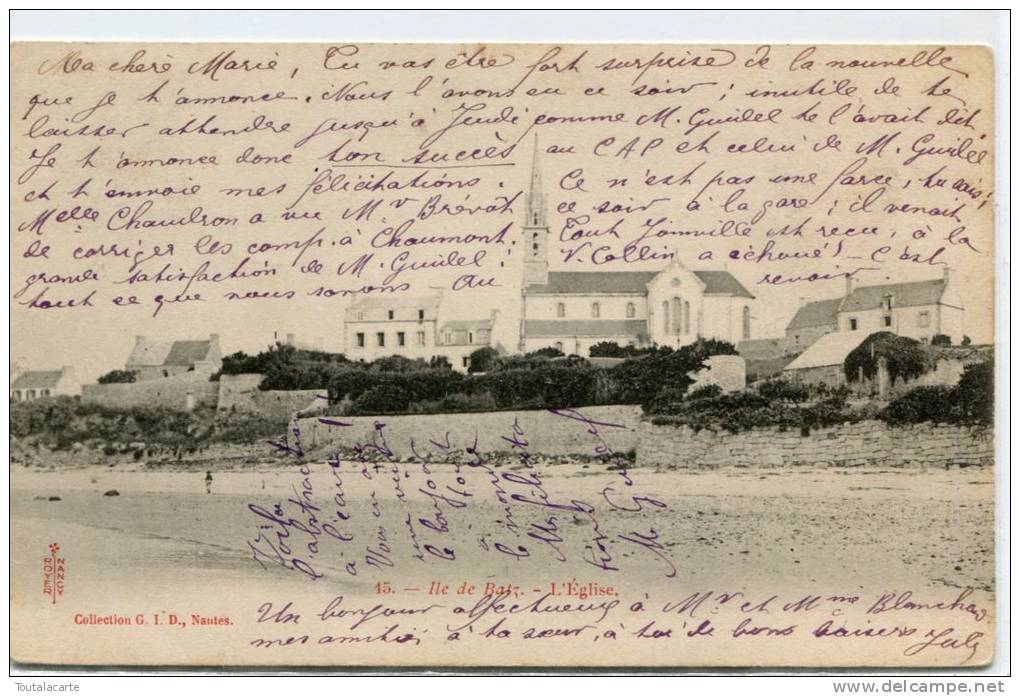 Ma chère Marie, Tu vas être fort surprise de la nouvelle
que je t'annonce. Nous l'avons eu ce soir ; inutile de te
laisser attendre jusqu'à Jeudi comme M. Guidel te l'avait dit.
Je t'annonce donc ton succès au CAP et celui de M. Guidel
et t'envoie mes félicitations. Ce n'est pas une farce, tu sais ;
Melle Chaudron a vu Mr Brévot ce soir à la gare ; il venait
de corriger les comp. à Chaumont. Tout Joinville est reçu, à la
grande satisfaction de M. Guidel ! V. Collin a échoué ! – C'est
tout ce que nous savons – Au revoir –
l'abstraction !
à l'eau !
Vous en avez
une vérité
le bonjour
à tout
le monde
Mes félicita
tions
M G
15. — Ile de Batz. — L'Église.
ROYER NANCY
Collection G. I. D., Nantes.
Un bonjour affectueux à Mr et Mme Blanchar
mes amitiés à ta sœur, à toi de bons baisers
Toutalacarte
www.delcampe.net